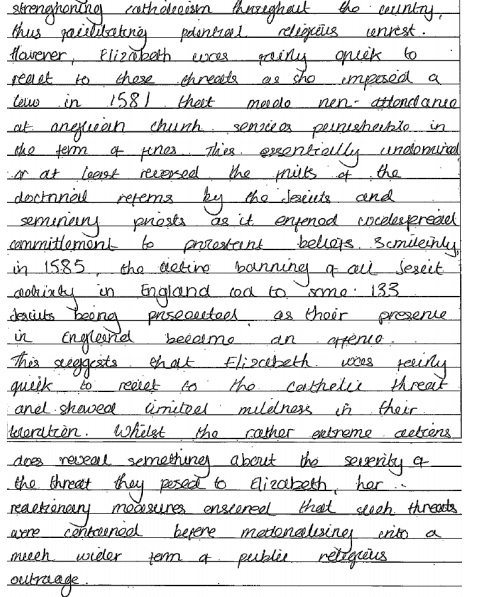 strenghoning catholocism throughout the country,
thus facilitating potential religious unrest.
However, Elizabeth was fairly quick to
react to these threats as she imposed a
law in 1581 that made non-attendance
at anglican church services punishable in
the form of fines. This essentially undermined,
or at least reversed the of the
doctrinal reforms by the Jesuits and
seminary priests as it enforced widespread
committement to protestant beliefs. Similarily,
in 1585, the active banning of all Jesuit
activity in England led to some 133
Jesuits being prosecuted, as their presence
in England became an offence.
This suggests that Elizabeth was fairly
quick to react to the catholic threat
and showed limited mildness in their
toleration. Whilst the rather extreme actions
does reveal something about the severity of
the threat they posed to Elizabeth, her
reactionary measures ensured that such threats
were contained before materialising into a
much wider form of public religious
outraage.